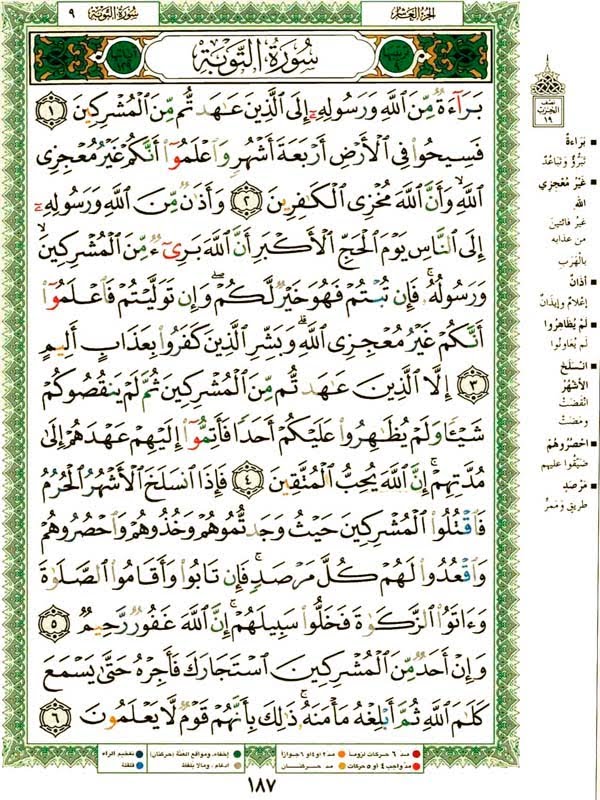 الجزء العاشر
سورة التوبة ٩
سُورَةُ التَّوْبَةِ
بَرَآءَةٌ مِّنَ ٱللَّهِ وَرَسُولِهِۦٓ إِلَى ٱلَّذِينَ عَٰهَدتُّم مِّنَ ٱلْمُشْرِكِينَ ١
فَسِيحُوا۟ فِى ٱلْأَرْضِ أَرْبَعَةَ أَشْهُرٍ وَٱعْلَمُوٓا۟ أَنَّكُمْ غَيْرُ مُعْجِزِى
ٱللَّهِ ۙ وَأَنَّ ٱللَّهَ مُخْزِى ٱلْكَٰفِرِينَ ٢ وَأَذَٰنٌ مِّنَ ٱللَّهِ وَرَسُولِهِۦٓ
إِلَى ٱلنَّاسِ يَوْمَ ٱلْحَجِّ ٱلْأَكْبَرِ أَنَّ ٱللَّهَ بَرِىٓءٌ مِّنَ ٱلْمُشْرِكِينَ ۙ
وَرَسُولُهُۥ ۚ فَإِن تُبْتُمْ فَهُوَ خَيْرٌ لَّكُمْ ۖ وَإِن تَوَلَّيْتُمْ فَٱعْلَمُوٓا۟
أَنَّكُمْ غَيْرُ مُعْجِزِى ٱللَّهِ ۗ وَبَشِّرِ ٱلَّذِينَ كَفَرُوا۟ بِعَذَابٍ أَلِيمٍ
٣ إِلَّا ٱلَّذِينَ عَٰهَدتُّم مِّنَ ٱلْمُشْرِكِينَ ثُمَّ لَمْ يَنقُصُوكُمْ
شَيْـًٔا وَلَمْ يُظَٰهِرُوا۟ عَلَيْكُمْ أَحَدًا فَأَتِمُّوٓا۟ إِلَيْهِمْ عَهْدَهُمْ إِلَىٰ
مُدَّتِهِمْ ۚ إِنَّ ٱللَّهَ يُحِبُّ ٱلْمُتَّقِينَ ٤ فَإِذَا ٱنسَلَخَ ٱلْأَشْهُرُ ٱلْحُرُمُ
فَٱقْتُلُوا۟ ٱلْمُشْرِكِينَ حَيْثُ وَجَدتُّمُوهُمْ وَخُذُوهُمْ وَٱحْصُرُوهُمْ
وَٱقْعُدُوا۟ لَهُمْ كُلَّ مَرْصَدٍ ۚ فَإِن تَابُوا۟ وَأَقَامُوا۟ ٱلصَّلَوٰةَ
وَءَاتَوُا۟ ٱلزَّكَوٰةَ فَخَلُّوا۟ سَبِيلَهُمْ ۚ إِنَّ ٱللَّهَ غَفُورٌ رَّحِيمٌ ٥
وَإِنْ أَحَدٌ مِّنَ ٱلْمُشْرِكِينَ ٱسْتَجَارَكَ فَأَجِرْهُ حَتَّىٰ يَسْمَعَ
كَلَٰمَ ٱللَّهِ ثُمَّ أَبْلِغْهُ مَأْمَنَهُۥ ۚ ذَٰلِكَ بِأَنَّهُمْ قَوْمٌ لَّا يَعْلَمُونَ ٦
نصف
الحزب
١٩
بَرَاءَةٌ
تَبَرُّؤٌ وَتَبَاعُدٌ
غَيْرُ مُعْجِزِي
الله
غَيرُ فائتينَ
من عذابِه
بالْهَرَبِ
أَذَانٌ
إعْلامٌ وإيذَانٌ
لَمْ يُظَاهِرُوا
لَم يُعَاوِنُوا
انْسَلَخَ
الأَشْهُرُ
انْقَضَتْ
ومضَتْ
احْصُرُوهُمْ
ضَيِّقُوا عليهم
مَرْصَدٍ
طريقٍ وممَرٍّ
مد ٦ حركات لزوماً مد ٢ او ٤ او ٦ جوازاً إخفاء، ومواقع الغنّة (حركتان) تفخيم الراء
مدّ واجب ٤ او ٥ حركات مد حركتان ادغام، ومالا يلفظ قلقلة
١٨٧